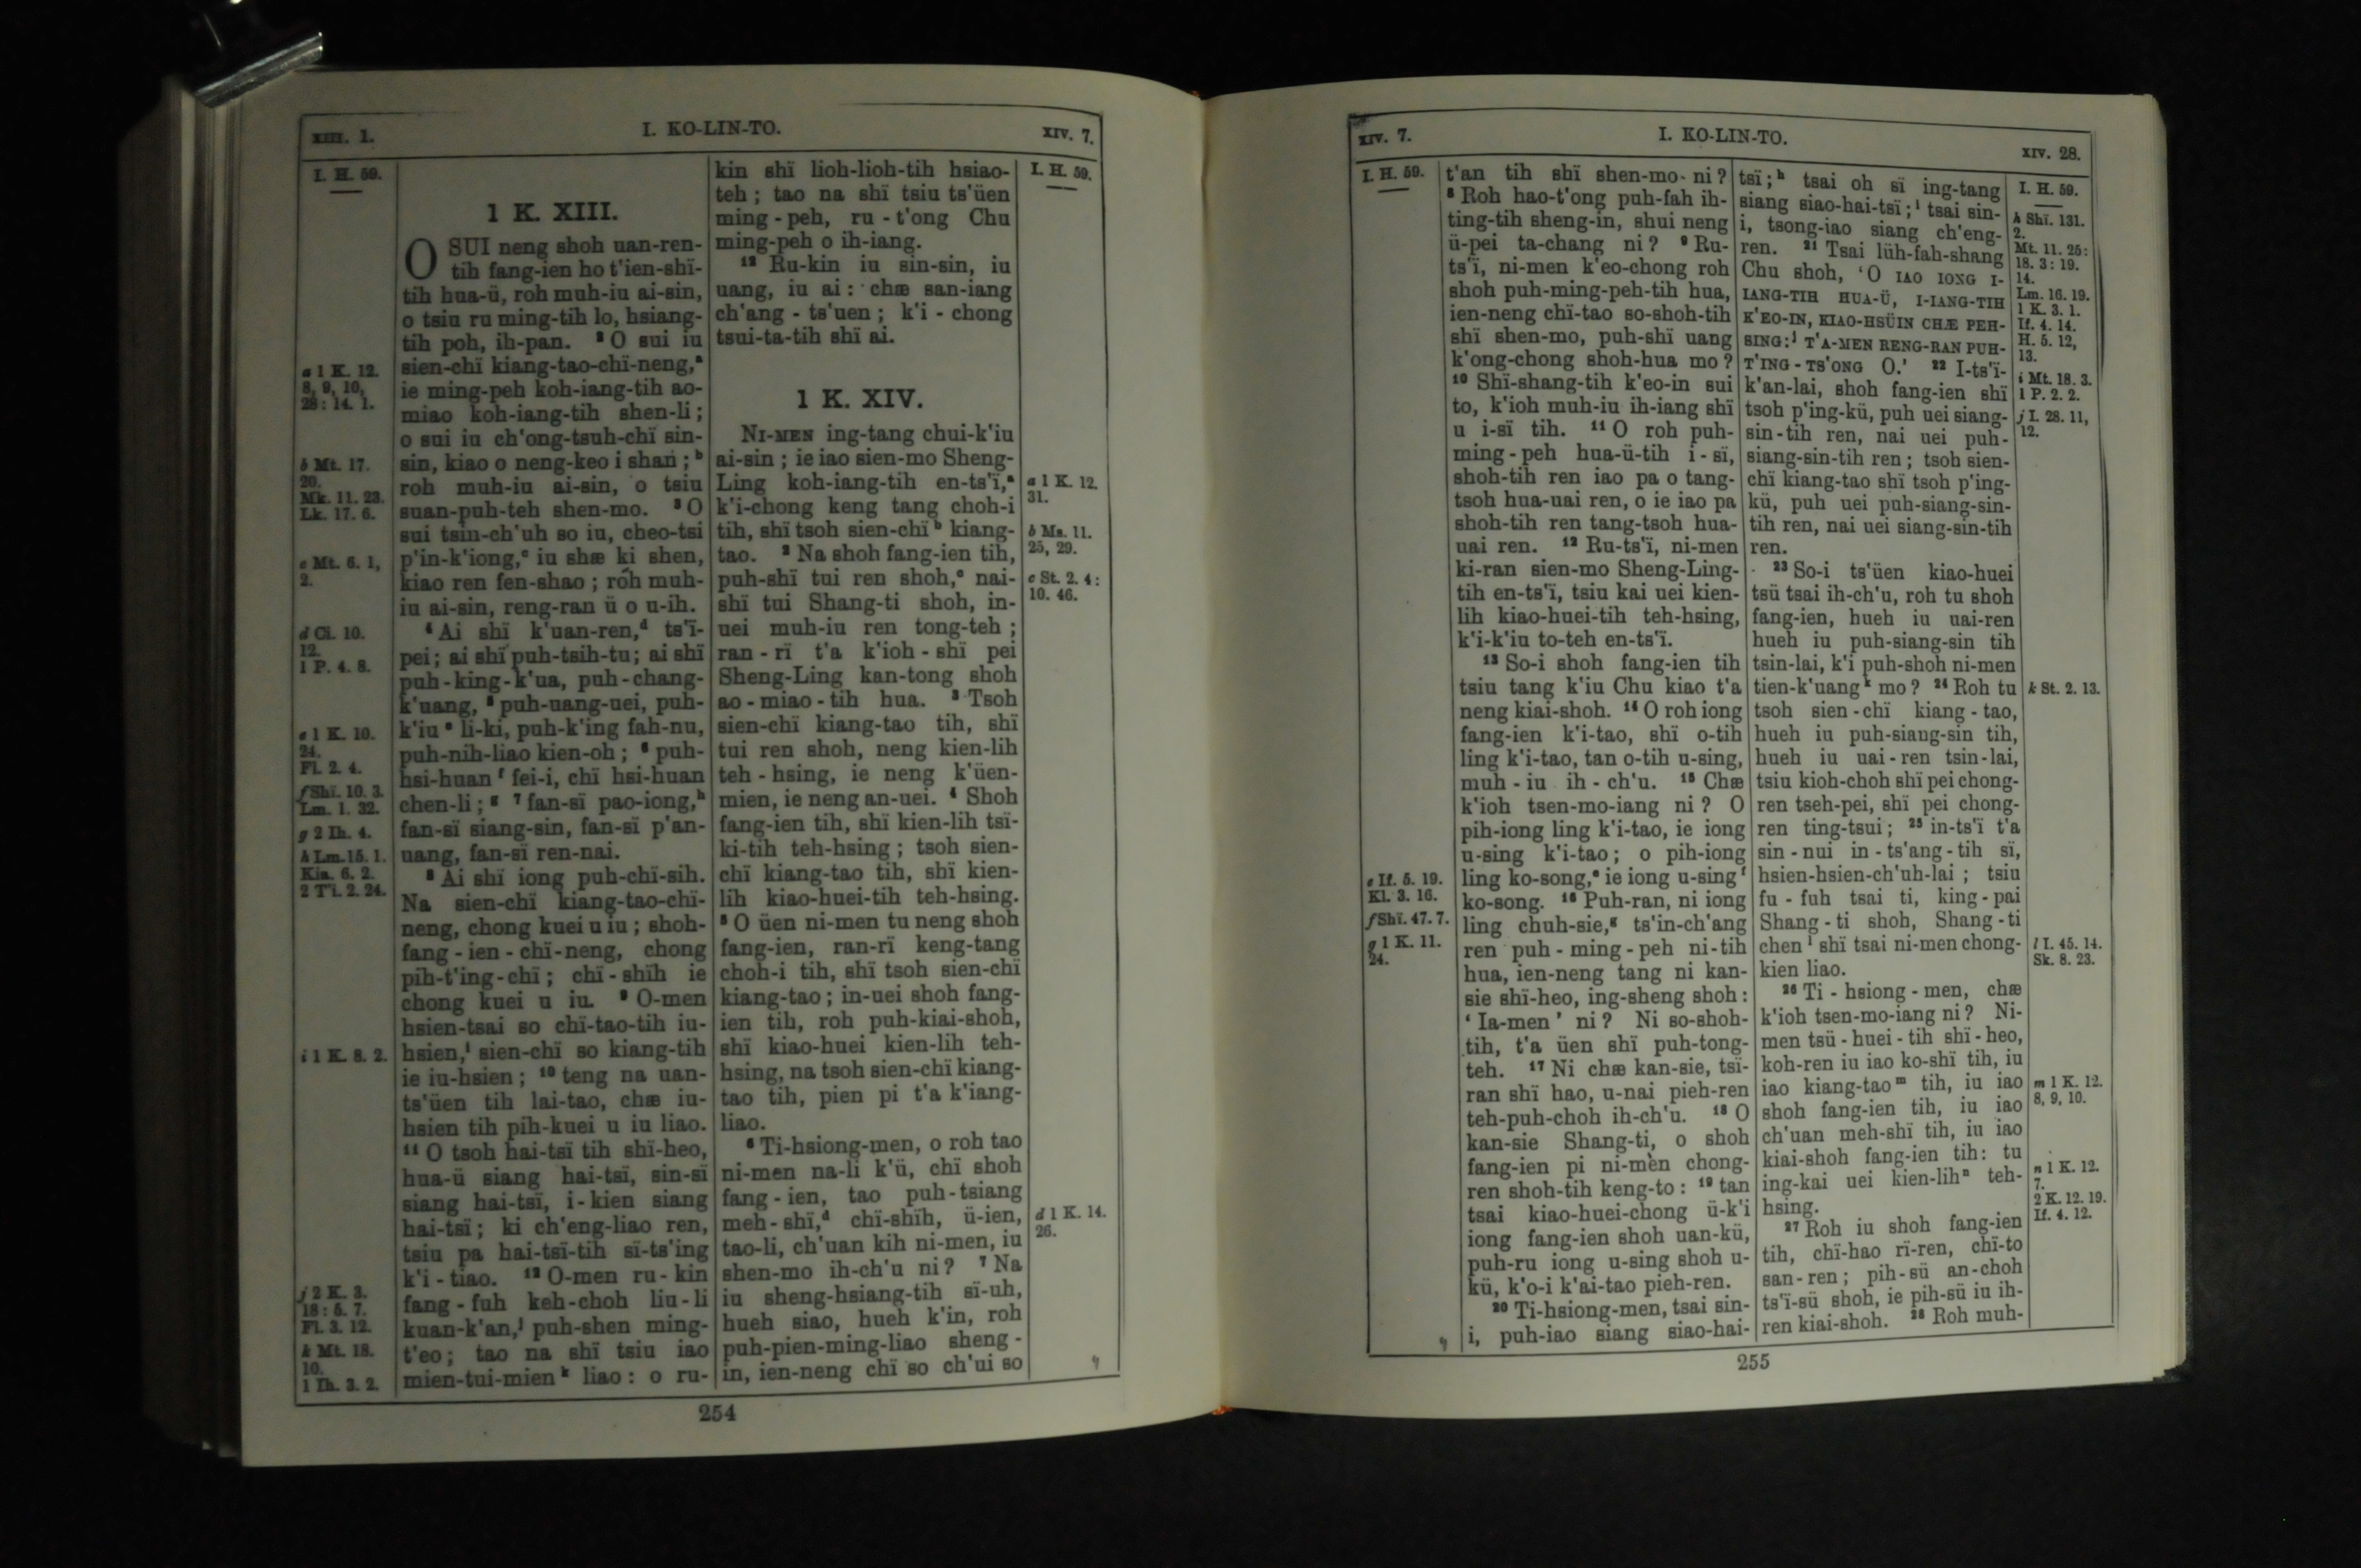 XIII. 1.
I. KO-LIN-TO.
XIV. 7.
I. H. 59.
a 1 K. 12.
8, 9, 10,
28: 14. 1.
b Mt. 17.
20.
Mk. 11. 23.
Lk. 17. 6.
c Mt. 6. 1,
2.
d Ci. 10.
12.
1 P. 4. 8.
e 1 K. 10.
24.
Fl. 2. 4.
f Shï. 10. 3.
Lm. 1. 32.
g 2 Ih. 4.
h Lm. 15. 1.
Kia. 6. 2.
2 T'i. 2. 24.
i 1 K. 8. 2.
j 2 K. 3.
18: 5. 7.
Fl. 3. 12.
k Mt. 18.
10.
1 Ih. 3. 2.
1 K. XIII.
O SUI neng shoh uan-ren-
tih fang-ien ho t'ien-shï-
tih hua-ü, roh muh-iu ai-sin,
o tsiu ru ming-tih lo, hsiang-
tih poh, ih-pan. 2 O sui iu
sien-chï kiang-tao-chï-neng,a
ie ming-peh koh-iang-tih ao-
miao koh-iang-tih shen-li;
o sui iu ch'ong-tsuh-chï sin-
sin, kiao o neng-keo i shan;b
roh muh-iu ai-sin, o tsiu
suan-puh-teh shen-mo. 3 O
sui tsin-ch'uh so iu, cheo-tsi
p'in-k'iong,c iu shæ ki shen,
kiao ren fen-shao; roh muh-
iu ai-sin, reng-ran ü o u-ih.
4 Ai shï k'uan-ren,d ts'ï-
pei; ai shï puh-tsih-tu; ai shï
puh-king-k'ua, puh-chang-
k'uang, 5 puh-uang-uei, puh-
k'iu e li-ki, puh-k'ing fah-nu,
puh-nih-liao kien-oh; 6 puh-
hsi-huan f fei-i, chï hsi-huan
chen-li;g 7 fan-sï pao-iong,h
fan-sï siang-sin, fan-sï p'an-
uang, fan-sï ren-nai.
8 Ai shï iong puh-chï-sih.
Na sien-chï kiang-tao-chï-
neng, chong kuei u iu; shoh-
fang-ien-chï-neng, chong
pih-t'ing-chï; chï-shïh ie
chong kuei u iu. 9 O-men
hsien-tsai so chï-tao-tih iu-
hsien,i sien-chï so kiang-tih
ie iu-hsien; 10 teng na uan-
ts'üen tih lai-tao, chæ iu-
hsien tih pih-kuei u iu liao.
11 O tsoh hai-tsï tih shï-heo,
hua-ü siang hai-tsï, sin-sï
siang hai-tsï, i-kien siang
hai-tsï; ki ch'eng-liao ren,
tsiu pa hai-tsï-tih sï-ts'ing
k'i-tiao. 12 O-men ru-kin
fang-fuh keh-choh liu-li
kuan-k'an,j puh-shen ming-
t'eo; tao na shï tsiu iao
mien-tui-mien k liao: o ru-
kin shï lioh-lioh-tih hsiao-
teh; tao na shï tsiu ts'üen
ming-peh, ru-t'ong Chu
ming-peh o ih-iang.
13 Ru-kin iu sin-sin, iu
uang, iu ai: chæ san-iang
ch'ang-ts'uen; k'i-chong
tsui-ta-tih shï ai.
1 K. XIV.
NI-MEN ing-tang chui-k'iu
ai-sin; ie iao sien-mo Sheng-
Ling koh-iang-tih en-ts'ï,a
k'i-chong keng tang choh-i
tih, shï tsoh sien-chï b kiang-
tao. 2 Na shoh fang-ien tih,
puh-shï tui ren shoh,c nai-
shï tui Shang-ti shoh, in-
uei muh-iu ren tong-teh;
ran-rï t'a k'ioh-shï pei
Sheng-Ling kan-tong shoh
ao-miao-tih hua. 3 Tsoh
sien-chï kiang-tao tih, shï
tui ren shoh, neng kien-lih
teh-hsing, ie neng k'üen-
mien, ie neng an-uei. 4 Shoh
fang-ien tih, shï kien-lih tsï-
ki-tih teh-hsing; tsoh sien-
chï kiang-tao tih, shï kien-
lih kiao-huei-tih teh-hsing.
5 O üen ni-men tu neng shoh
fang-ien, ran-rï keng-tang
choh-i tih, shï tsoh sien-chï
kiang-tao; in-uei shoh fang-
ien tih, roh puh-kiai-shoh,
shï kiao-huei kien-lih teh-
hsing, na tsoh sien-chï kiang-
tao tih, pien pi t'a k'iang-
liao.
6 Ti-hsiong-men, o roh tao
ni-men na-li k'ü, chï shoh
fang-ien, tao puh-tsiang
meh-shï,d chï-shïh, ü-ien,
tao-li, ch'uan kih ni-men, iu
shen-mo ih-ch'u ni? 7 Na
iu sheng-hsiang-tih sï-uh,
hueh siao, hueh k'in, roh
puh-pien-ming-liao sheng-
in, ien-neng chï so ch'ui so
I. H. 59.
a 1 K. 12.
31.
b Ms. 11.
25, 29.
c St. 2. 4:
10. 46.
d 1 K. 14.
26.
254
XIV. 7.
I. KO-LIN-TO.
XIV. 28.
I. H. 59.
e If. 5. 19.
Kl. 3. 16.
f Shï. 47. 7.
g 1 K. 11.
24.
t'an tih shï shen-mo ni?
8 Roh hao-t'ong puh-fah ih-
ting-tih sheng-in, shui neng
ü-pei ta-chang ni? 9 Ru-
ts'ï, ni-men k'eo-chong roh
shoh puh-ming-peh-tih hua,
ien-neng chï-tao so-shoh-tih
shï shen-mo, puh-shï uang
k'ong-chong shoh-hua mo?
10 Shï-shang-tih k'eo-in sui
to, k'ioh muh-iu ih-iang shï
u i-sï tih. 11 O roh puh-
ming-peh hua-ü-tih i-sï,
shoh-tih ren iao pa o tang-
tsoh hua-uai ren, o ie iao pa
shoh-tih ren tang-tsoh hua-
uai ren. 12 Ru-ts'ï, ni-men
ki-ran sien-mo Sheng-Ling-
tih en-ts'ï, tsiu kai uei kien-
lih kiao-huei-tih teh-hsing,
k'i-k'iu to-teh en-ts'ï.
13 So-i shoh fang-ien tih
tsiu tang k'iu Chu kiao t'a
neng kiai-shoh. 14 O roh iong
fang-ien k'i-tao, shï o-tih
ling k'i-tao, tan o-tih u-sing,
muh-iu ih-ch'u. 15 Chæ
k'ioh tsen-mo-iang ni? O
pih-iong ling k'i-tao, ie iong
u-sing k'i-tao; o pih-iong
ling ko-song,e ie iong u-sing f
ko-song. 16 Puh-ran, ni iong
ling chuh-sie,g ts'in-ch'ang
ren puh-ming-peh ni-tih
hua, ien-neng tang ni kan-
sie shï-heo, ing-sheng shoh:
‘Ia-men’ ni? Ni so-shoh-
tih, t'a üen shï puh-tong-
teh. 17 Ni chæ kan-sie, tsï-
ran shï hao, u-nai pieh-ren
teh-puh-choh ih-ch'u. 18 O
kan-sie Shang-ti, o shoh
fang-ien pi ni-men chong-
ren shoh-tih keng-to: 19 tan
tsai kiao-huei-chong ü-k'i
iong fang-ien shoh uan-kü,
puh-ru iong u-sing shoh u-
kü, k'o-i k'ai-tao pieh-ren.
20 Ti-hsiong-men, tsai sin-
i, puh-iao siang siao-hai-
tsï;h tsai oh sï ing-tang
siang siao-hai-tsï;i tsai sin-
i, tsong-iao siang ch'eng-
ren. 21 Tsai lüh-fah-shang
Chu shoh, ‘O IAO IONG I-
IANG-TIH HUA-Ü, I-IANG-TIH
K'EO-IN, KIAO-HSÜIN CHÆ PEH-
SING:j T'A-MEN RENG-RAN PUH-
T'ING-TS'ONG O.’ 22 I-ts'ï-
k'an-lai, shoh fang-ien shï
tsoh p'ing-kü, puh uei siang-
sin-tih ren, nai uei puh-
siang-sin-tih ren; tsoh sien-
chï kiang-tao shï tsoh p'ing-
kü, puh uei puh-siang-sin-
tih ren, nai uei siang-sin-tih
ren.
23 So-i ts'üen kiao-huei
tsü tsai ih-ch'u, roh tu shoh
fang-ien, hueh iu uai-ren
hueh iu puh-siang-sin tih
tsin-lai, k'i puh-shoh ni-men
tien-k'uang k mo? 24 Roh tu
tsoh sien-chï kiang-tao,
hueh iu puh-siang-sin tih,
hueh iu uai-ren tsin-lai,
tsiu kioh-choh shï pei chong-
ren tseh-pei, shï pei chong-
ren ting-tsui; 25 in-ts'ï t'a
sin-nui in-ts'ang-tih sï,
hsien-hsien-ch'uh-lai; tsiu
fu-fuh tsai ti, king-pai
Shang-ti shoh, Shang-ti
chen l shï tsai ni-men chong-
kien liao.
26 Ti-hsiong-men, chæ
k'ioh tsen-mo-iang ni? Ni-
men tsü-huei-tih shï-heo,
koh-ren iu iao ko-shï tih, iu
iao kiang-tao m tih, iu iao
shoh fang-ien tih, iu iao
ch'uan meh-shï tih, iu iao
kiai-shoh fang-ien tih: tu
ing-kai uei kien-lih n teh-
hsing.
27 Roh iu shoh fang-ien
tih, chï-hao rï-ren, chï-to
san-ren; pih-sü an-choh
ts'ï-sü shoh, ie pih-sü iu ih-
ren kiai-shoh. 28 Roh muh-
I. H. 59.
h Shï. 131.
2.
Mt. 11. 25:
18. 3: 19.
14.
Lm. 16. 19.
1 K. 3. 1.
If. 4. 14.
H. 5. 12,
13.
i Mt. 18. 3.
1 P. 2. 2.
j I. 28. 11,
12.
k St. 2. 13.
l I. 45. 14.
Sk. 8. 23.
m 1 K. 12.
8, 9, 10.
n 1 K. 12.
7.
2 K. 12. 19.
If. 4. 12.
255